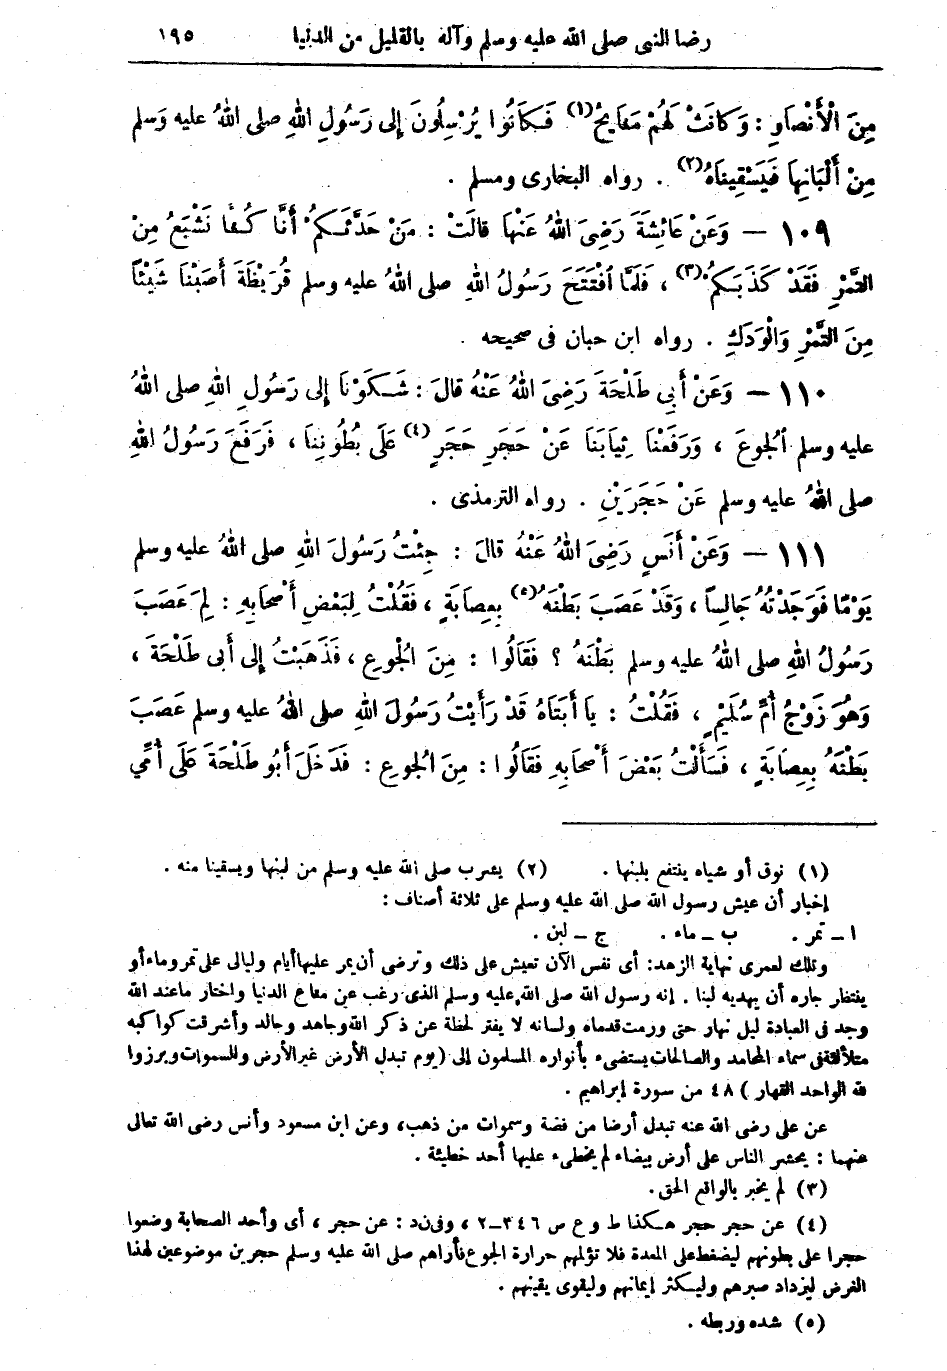 رضا النبى صلى الله عليه وسلم وآله بالقليل من الدنيا ١٩٥
مِنَ الْأَنْصَارِ : وَكَانَتْ لَهُمْ مَنَايِحُ(١) فَكَانُوا يُرْسِلُونَ إِلَى رَسُولِ اللهِ صلى اللهُ عليه وَسلم
مِنْ أَلْبَانِهَا فَيَسْقِينَاهُ(٢) . رواه البخارى ومسلم .
١٠٩ — وَعَنْ عَائِشَةَ رَضِىَ اللهُ عَنْهَا قالَتْ : مَنْ حَدَّثَكُمْ أَنَّا كُنَّا نَشْبَعُ مِنَ
التَّمْرِ فَقَدْ كَذَبَكُمْ(٣) ، فَلَمَّا افْتَتَحَ رَسُولُ اللهِ صلى اللهُ عليه وسلم قُرَيْظَةَ أَصَبْنَا شَيْئًا
مِنَ التَّمْرِ وَالْوَدَكِ . رواه ابن حبان فى صحيحه .
١١٠ — وَعَنْ أَبِى طَلْحَةَ رَضِىَ اللهُ عَنْهُ قالَ : شَكَوْنَا إِلَى رَسُولِ اللهِ صلى اللهُ
عليه وسلم الْجُوعَ ، وَرَفَعْنَا ثِيَابَنَا عَنْ حَجَرٍ حَجَرٍ(٤) عَلَى بُطُونِنَا ، فَرَفَعَ رَسُولُ اللهِ
صلى اللهُ عليه وسلم عَنْ حَجَرَيْنِ . رواه الترمذى .
١١١ — وَعَنْ أَنَسٍ رَضِىَ اللهُ عَنْهُ قالَ : جِئْتُ رَسُولَ اللهِ صلى اللهُ عليه وسلم
يَوْمًا فَوَجَدْتُهُ جَالِساً ، وَقَدْ عَصَبَ بَطْنَهُ(٥) بِعِصَابَةٍ ، فَقُلْتُ لِبَعْضِ أَصْحَابِهِ : لِمَ عَصَبَ
رَسُولُ اللهِ صلى اللهُ عليه وسلم بَطْنَهُ ؟ فَقَالُوا : مِنَ الْجُوعِ ، فَذَهَبْتُ إِلَى أَبِى طَلْحَةَ ،
وَهُوَ زَوْجُ أُمِّ سُلَيْمٍ ، فَقُلْتُ : يا أَبَتَاهُ قَدْ رَأَيْتُ رَسُولَ اللهِ صلى اللهُ عليه وسلم عَصَبَ
بَطْنَهُ بِعِصَابَةٍ ، فَسَأَلْتُ بَعْضَ أَصْحَابِهِ فَقَالُوا : مِنَ الْجُوعِ : فَدَخَلَ أَبُو طَلْحَةَ عَلَى أُمِّي
(١) نوق أو شياه ينتفع بلبنها . (٢) يشرب صلى الله عليه وسلم من لبنها ويسقينا منه .
إخبار أن عيش رسول الله صلى الله عليه وسلم على ثلاثة أصناف :
ا - تمر . ب - ماء . ج - لبن .
وتلك لعمرى نهاية الزهد: أى نفس الآن تعيش على ذلك وترضى أن يمر عليها أيام وليالى على تمر وماء أو
ينتظر جاره أن يهديه لبنا . إنه رسول الله صلى الله عليه وسلم الذى رغب عن متاع الدنيا واختار ما عند الله
وجد فى العبادة ليل نهار حتى ورمت قدماه ولسانه لا يفتر لحظة عن ذكر الله وجاهد وجالد وأشرقت كواكبه
متلألئة فى سماء المحامد والصالحات يستضىء بأنواره المسلمون إلى (يوم تبدل الأرض غير الأرض والسموات وبرزوا
لله الواحد القهار ) ٤٨ من سورة إبراهيم .
عن على رضى الله عنه تبدل أرضا من فضة وسموات من ذهب، وعن ابن مسعود وأنس رضى الله تعالى
عنهما : يحشر الناس على أرض بيضاء لم يخطىء عليها أحد خطيئة .
(٣) لم يخبر بالواقع الحق .
(٤) عن حجر حجر هكذا ط و ع ص ٣٤٦-٢ ، وفى ن د : عن حجر ، أى وأحد الصحابة وضعوا
حجرا على بطونهم ليضغط على المعدة فلا تؤلمهم حرارة الجوع فأراهم صلى الله عليه وسلم حجرين موضوعين لهذا
الغرض ليزداد صبرهم وليكثر إيمانهم وليقوى يقينهم .
(٥) شده وربطه .